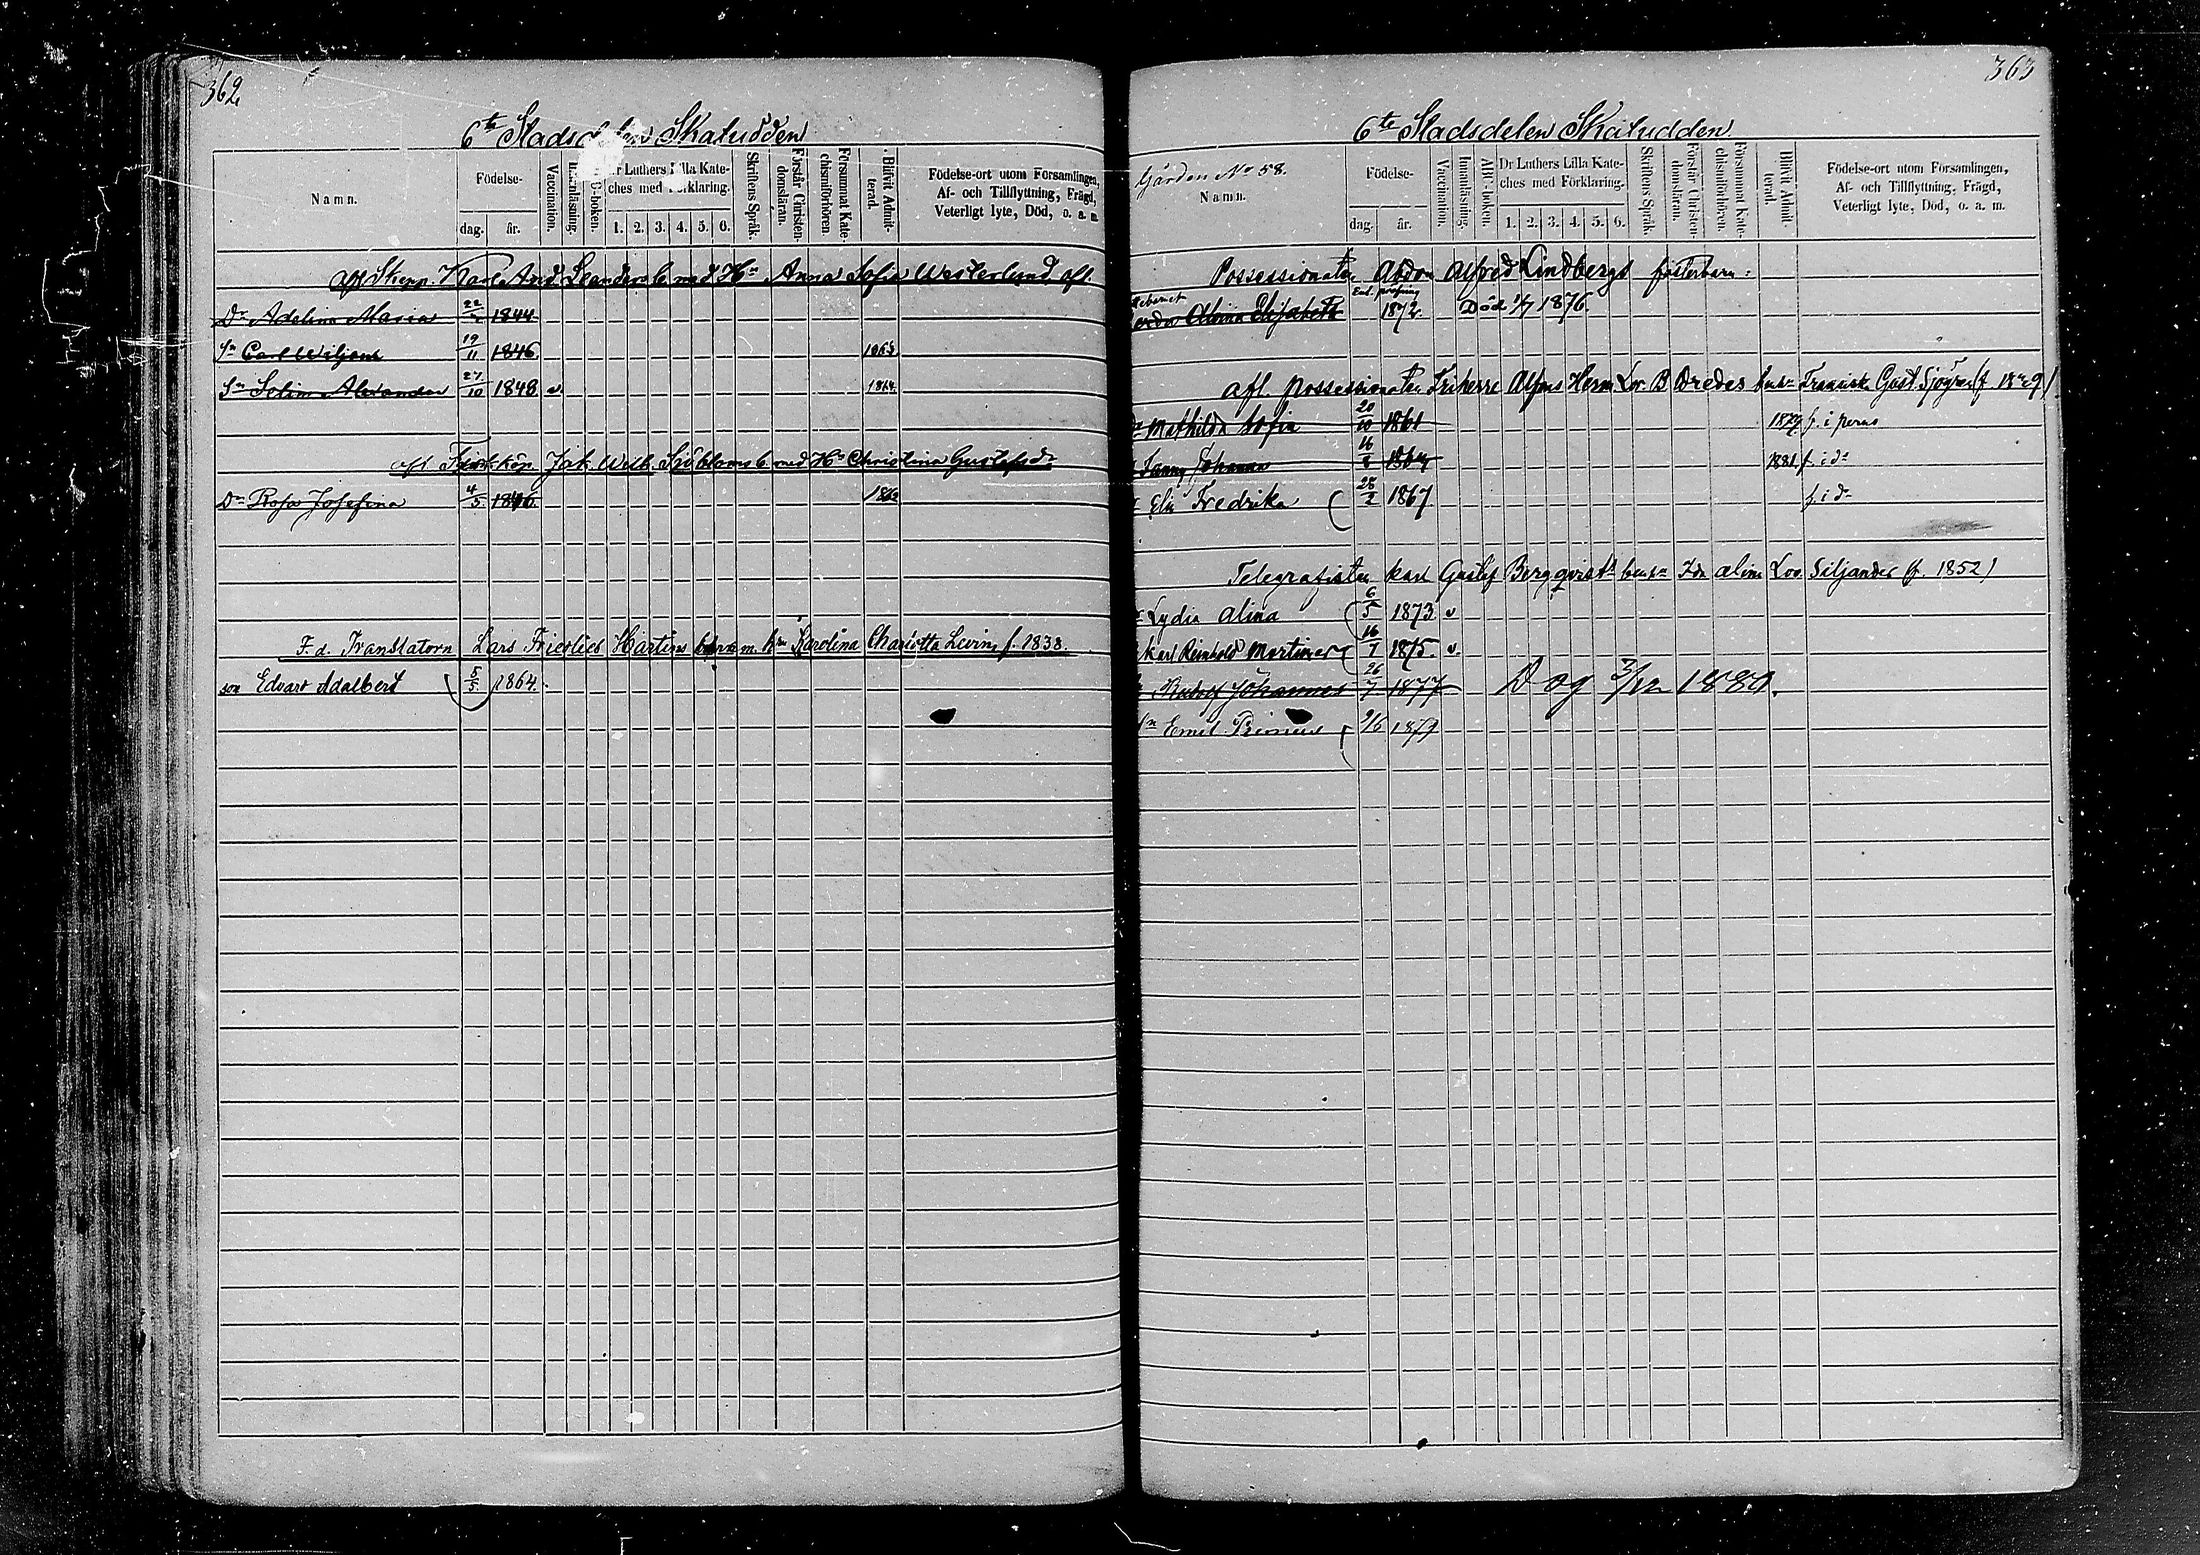 362
6te Stadsdelen Skatudden
Namn.
Födelse-
dag.
år.
Vaccination.
C-boken.
Dr Luthers Lilla Kate-
ches med Förklaring.
1. 2. 3. 4. 5. 6.
Skriftens Språk.
Förstår Christen-
domsläran.
Försummat Kate-
chismiförhören
Blifvit Admit-
terad.
Födelse-ort utom Församlingen,
Af- och Tillflyttning, Frägd,
Veterligt lyte, Död, o. a. m.
afl Skepp. Karl And. Leanders b. med Hu Anna Sofia Westerlund afl.
Dr Adelina Maria 1844
Sn Carl Wiljam 19/11 1846 1865
Sn Selim Alexander 27/10 1848 v 1864
afl Jak. Wilh. Sjöbloms b med Hu Christina Gustafsdr
Dr Rosa Josefina 4/5 1846
F. d. Translatorn Lars Hartins barn m. hu Karolina Charlotta Levin, f. 1838.
son Edvart Adalbert 5/5 1864.
363
6te Stadsdelen Skatudden
Gården No 58.
Namn.
Födelse-
dag.
år.
Vaccination.
Innanläsning.
ABC-boken.
Dr Luthers Lilla Kate-
ches med Förklaring.
1. 2. 3. 4. 5. 6.
Skriftens Språk.
Förstår Christen-
domsläran.
Försummat Kate-
chismiförhören.
Blifvit Admit-
terad.
Födelse-ort utom Församlingen,
Af- och Tillflyttning, Frägd,
Veterligt lyte, Död, o. a. m.
Possessionaten Abdon Alfred Lindbergs fosterbarn:
Alvina Elisabeth 1872. Död 1/7 1876.
afl. possessionaten Friherre Alfons Herm. Lor. B Bredes Gust. Sjögren (f. 1829)
Mathilda Sofia 20/10 1861 1879 f. i perno
Fanny Johanna 16/8 1864 1881 f. i do
Elin Fredrika 28/2 1867 f. i do
Telegrafisten Karl Gustaf Bergqvists Ida Alina Lov. Siljander (f. 1852)
Lydia Alina 6/5 1873 v
Karl Reinhold Mortimer 16/1 1875. v.
Rudolf Johannes 26/7 1877 Dog 3/12 1880.
Sn Emil 9/6 1879